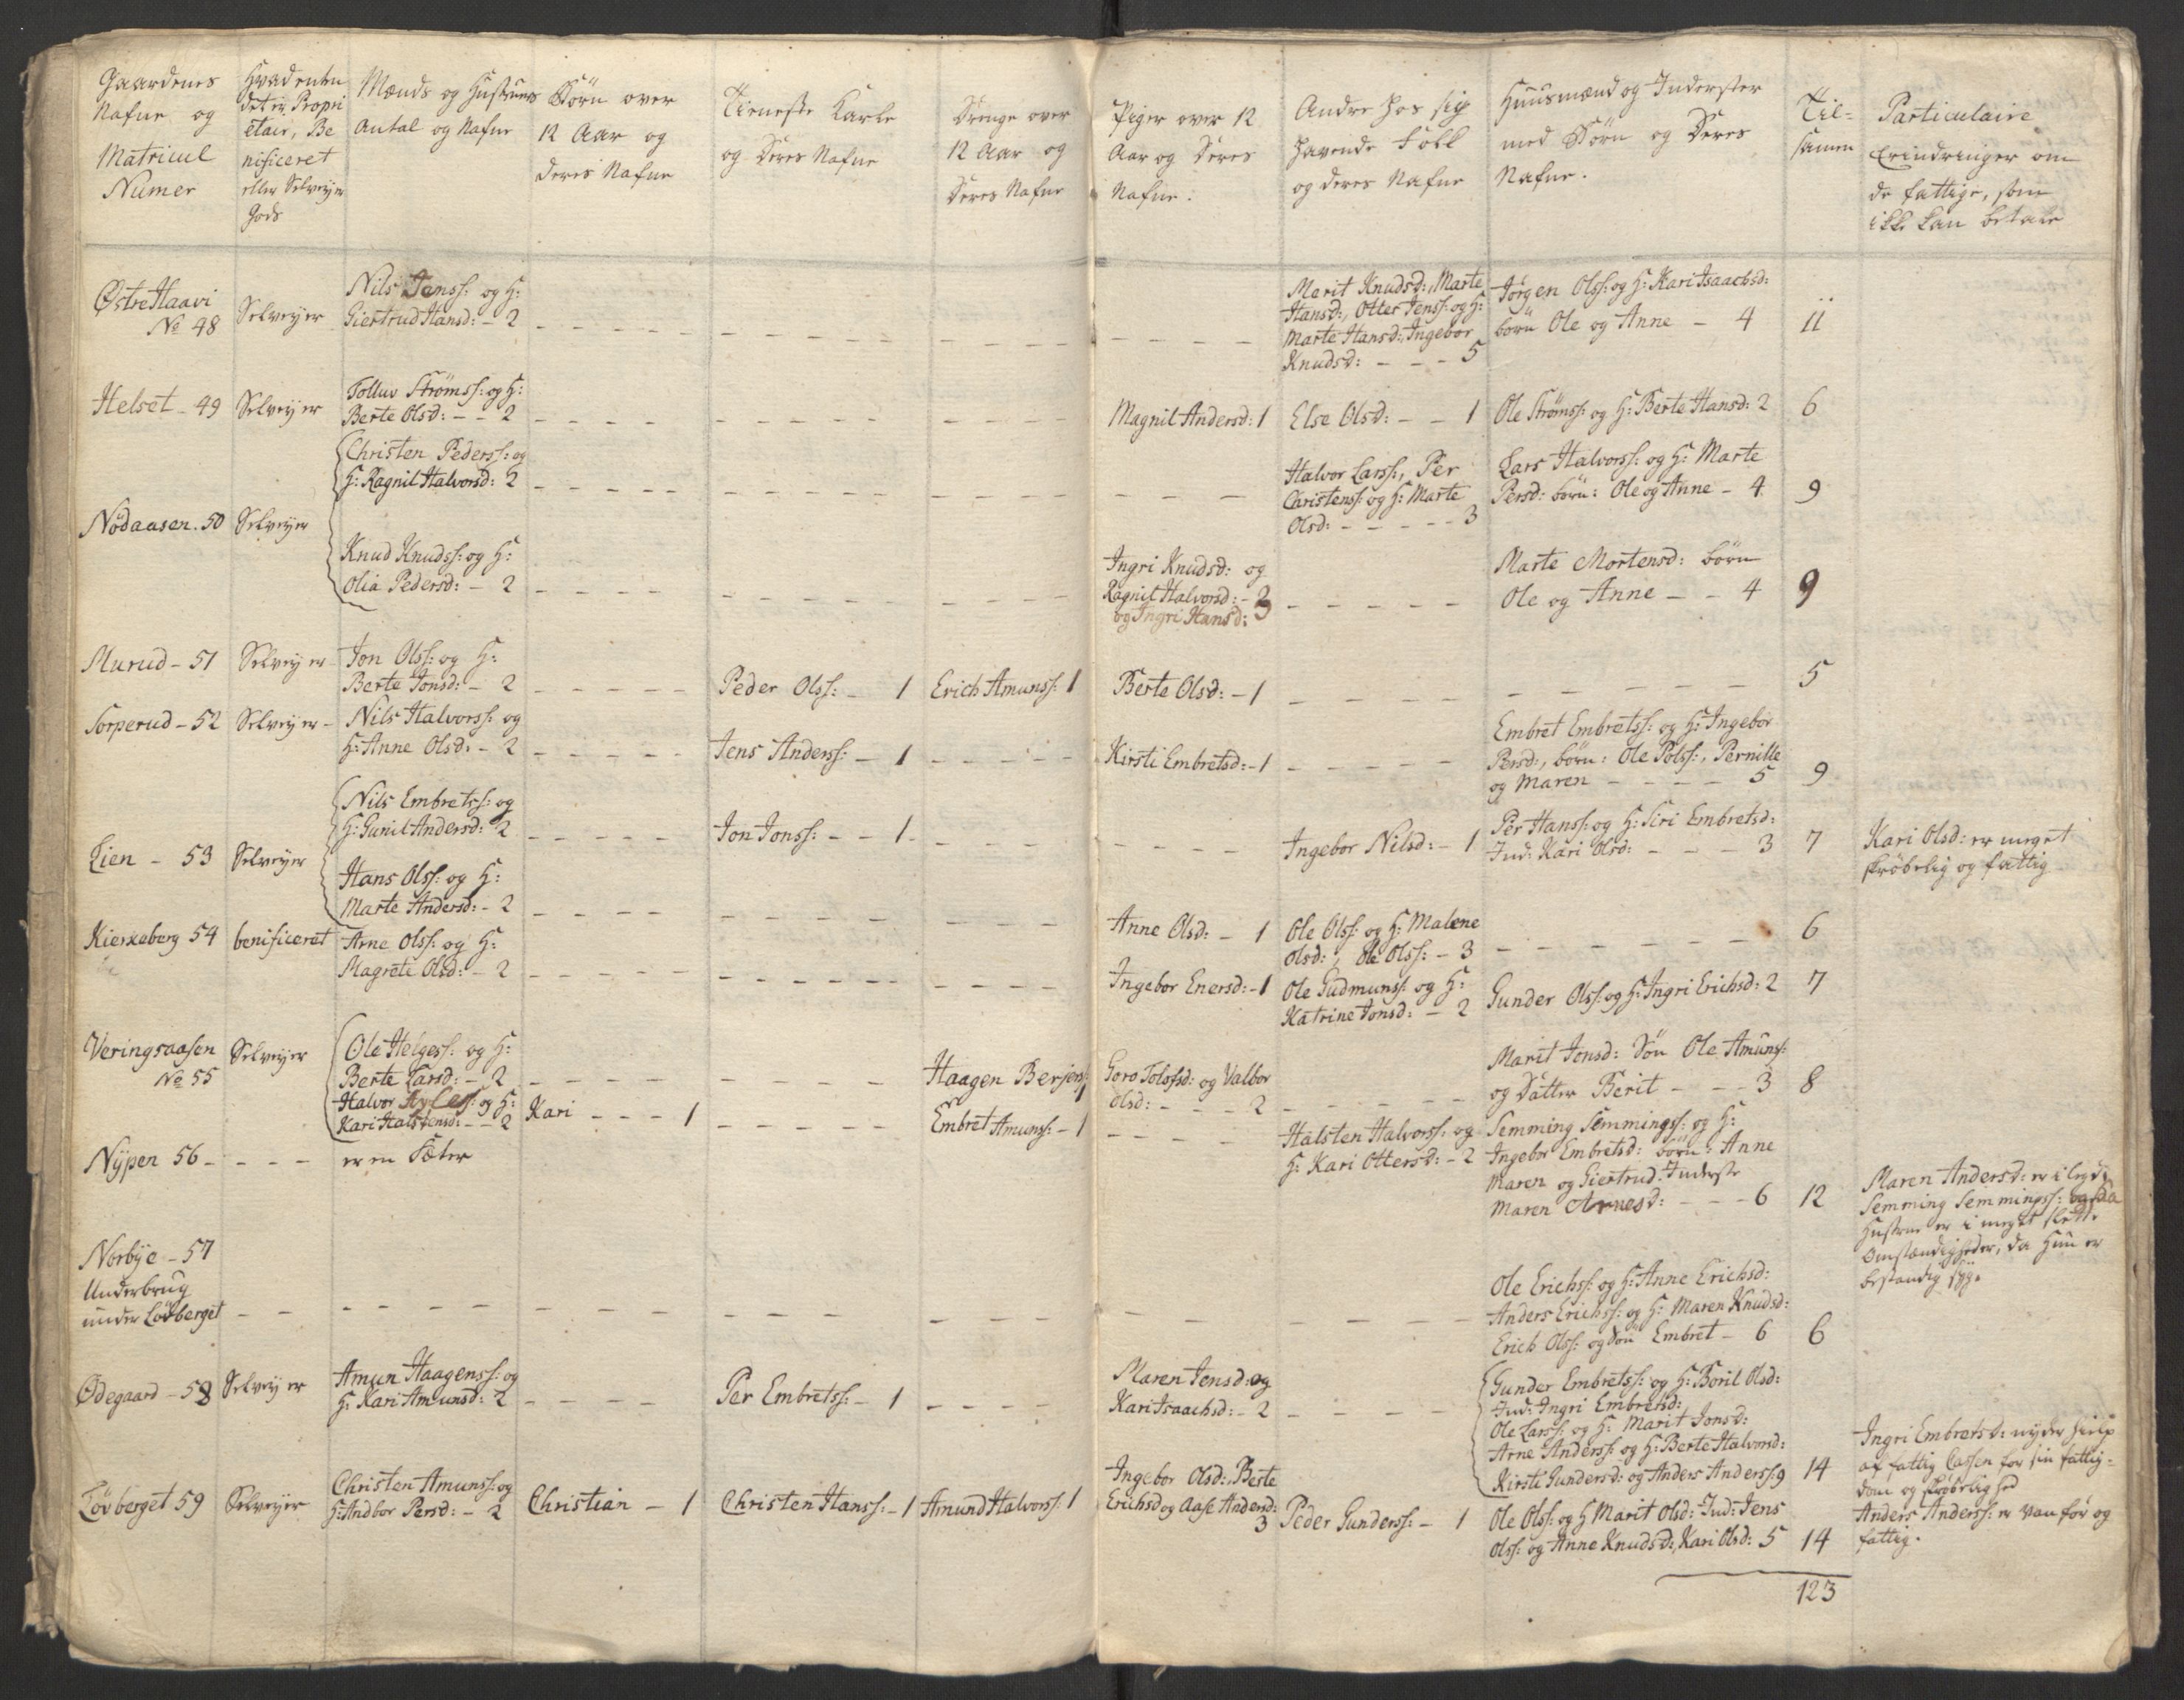 Gaardenes
Nafne og
Matricul
Numer
Hvad enten
det er Propri
etair, Be
nificeret
eller Selveyer
Gods
Mænds og Hustruers
Antal og Nafne
Börn over
12 Aar og
deres Nafne
Tieneste Karle
og Deres Nafne
Drenge over
12 Aar og
Deres Nafne
Piger over 12
Aar og Deres
Nafne.
Andre hos sig
havende Folk
og deres Nafne
Huusmænd og Inderster
med Börn og Deres
Nafne.
Til=
samen
Particulaire
Erindringer om
de fattige, som
ikke kan betale
Østre Haavi
No 48
Selveyer
Nils Jenss: og H:
Giertrud Hansd: - 2
Marit Knudsd:, Marte
Hansd:, Otter Jenss: og H:
Marte Hansd:, Ingebor
Knudsd: - - - 5
Jørgen Olss: og H: Kari Isaachsd:
börn Ole og Anne - 4
11
Helset - 49
Selveyer
Tolluv Strømss: og H:
Berte Olsd: - - 2
Magnil Andersd: 1
Else Olsd: - - 1
Ole Strømss: og H: Berte Hansd: 2
6
Nödaasen. 50
Selveyer
Christen Pederss: og
H: Ragnil Halvorsd: 2
Halvor Larss:, Per
Christenss: og H: Marte
Olsd: - - - - - 3
Lars Halvorss: og H: Marte
Persd: börn: Ole og Anne - 4
9
Knud Knudss: og H:
Olia Pedersd: - 2
Ingri Knudsd: og
Ragnil Halvorsd: -
og Ingri Hansd: 3
Marte Mortensd: börn
Ole og Anne - - 4
9
Murud - 51
Selveyer
Jon Olss: og H:
Berte Jonsd: - 2
Peder Olss: - 1
Erich Amunss: 1
Berte Olsd: - 1
5
Torperud - 52
Selveyer -
Nils Halvorss: og
H: Anne Olsd: - 2
Jens Anderss: - 1
Kirsti Embretsd: - 1
Embret Embretss: og H: Ingebor
Persd:, börn: Ole Polss:, Pernille
og Maren - - - - 5
9
Lien - 53
Selveyer
Nils Embretss: og
H: Gunil Andersd: 2
Jon Jonss: - - 1
Ingebor Nilsd: - 1
Per Hanss: og H: Siri Embretsd:
Ind: Kari Olsd: - - - 3
7
Kari Olsd: er meget
skröbelig og fattig
Hans Olss: og H:
Marte Andersd: - 2
Anne Olsd: - 1
Ole Olss: og H: Malene
Olsd:, Ole Olss: - 3
6
Kierkeberg 54
benificeret
Arne Olss: og H:
Magrete Olsd: - 2
Ingebor Enersd: - 1
Ole Gudmunss: og H:
Katrine Jonsd: - 2
Gunder Olss: og H: Ingri Erichsd: 2
7
Veringsaasen
No 55
Selveyer
Ole Helgess: og H:
Berte Larsd: - 2
Haagen Berjers: 1
Goro Tolofsd: og Valbor
Olsd: - - - 2
Marit Jonsd: Sön Ole Amunss:
og Datter Berit - - 3
8
Halvor og H:
Kari Halstensd: - - 2
Kari - - - 1
Embret Amunss: - 1
Halsten Halvorss: og
H: Kari Ottersd: - 2
Semming Semmingss: og H:
Ingebor Embretsd: börn: Anne
Maren og Giertrud. Inderste
Maren Arnesd: - - - 6
12
Maren Andersd: er i
Semming Semmingss:
Hustrue er i meget slette
Omstændigheder, da Hun er
bestandig syg.
Nypen 56 - - - -
er en Sæter
Norbye - 57
Underbrug
under Lövberget
Ole Erichss: og H: Anne Erichsd:
Anders Erichss: og H: Maren Knudsd:
Erich Olss: og Sön Embret - 6
6
Ödegaard - 58
Selveyer
Amun Haagenss: og
H: Kari Amunsd: 2
Per Embretss: - 1
Maren Jensd: og
Kari Isaachsd: - 2
Gunder Embretss: og H: Boril Olsd:
Ind: Ingri Embretsd:
Ole Larss: og H: Marit Jonsd:
Arne Anderss: og H: Berte Halvorsd:
Kirsti Gundersd: og Anders Anderss: 9
14
Ingri Embretsd: nyder hielp
af fattig Cassen for sin fattig=
dom og skröbelighed
Anders Anderss: er vanför og
fattig.
Lövberget 59
Selveyer
Christen Amunss: og
H: Andbor Persd: - 2
Christian - 1
Christen Hanss: - 1
Amund Halvorss: 1
Ingebor Olsd:, Berte
Erichsd og Aase Andersd:
3
Peder Gunderss: - 1
Ole Olss: og H Marit Olsd: Ind: Jens
Olss: og Anne Knudsd:, Kari Olsd: 5
14
123